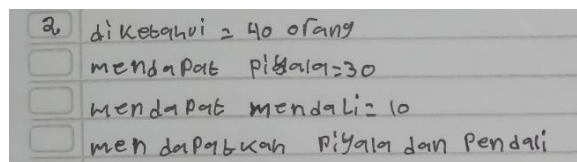 2 diketahui = 40 orang
mendapat piyala=30
mendapat mendali= 10
mendapatkan piyala dan pendali